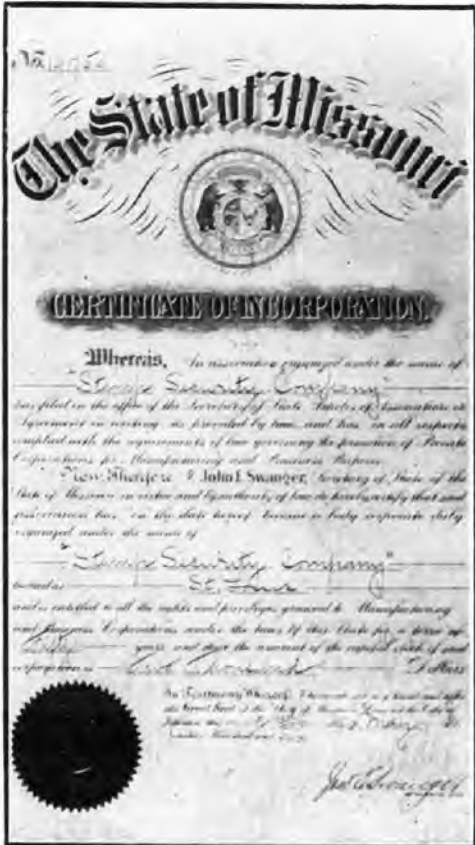 No.
The State of Missouri
CERTIFICATE OF INCORPORATION.
Whereas, An association organized under the name of
"Stamps Security Company"
has filed in the office of the Secretary of State Articles of Association or
Agreement in writing, as provided by law, and has in all respects
complied with the requirements of law governing the formation of Private
Corporations for Manufacturing and Business Purposes
Now, Therefore I John E Swanger, Secretary of State of the
State of Missouri in virtue and by authority of law, do hereby certify that said
association has, on the date hereof become a body corporate duly
organized under the name of
"Stamps Security Company"
located at St. Louis
and is entitled to all the rights and privileges granted to Manufacturing
and Business Corporations under the laws of this State for a term of
years and that the amount of the capital stock of said
corporation is Thousand Dollars
In Testimony Whereof, I hereunto set my hand and affix
the Great Seal of the State of Missouri Done at the City of
Jefferson this day of
Hundred and
Jno E Swanger